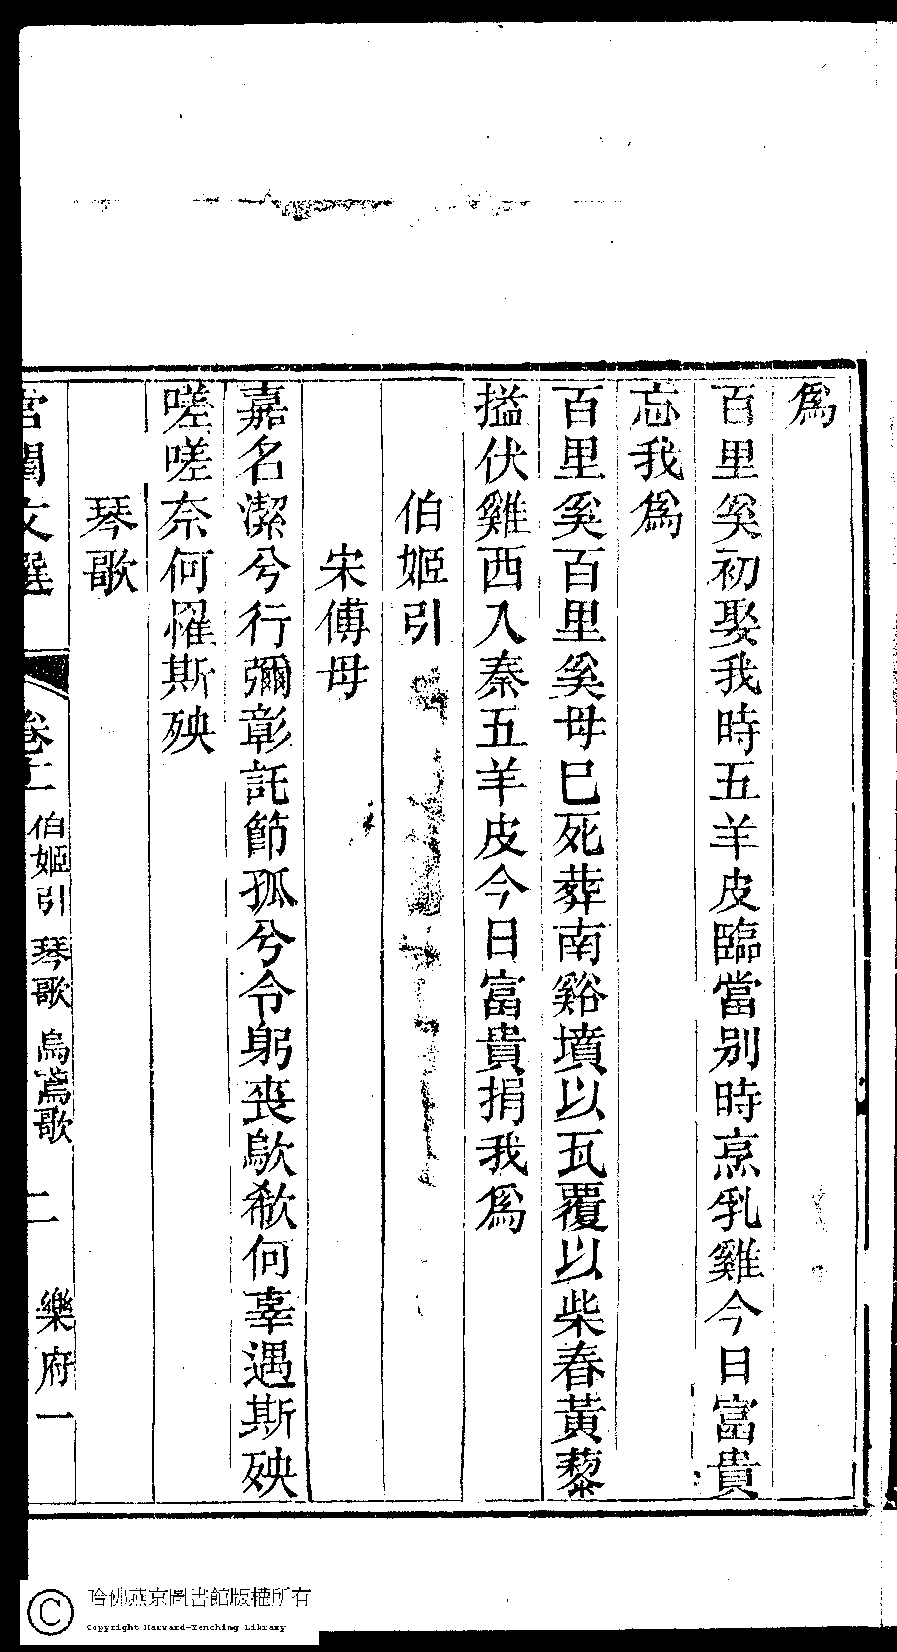 為
百里奚初娶我時五羊皮臨當别時烹乳雞今日富貴
忘我為
百里奚百里奚母巳死葬南谿墳以瓦覆以柴舂黃藜
搤伏雞西入秦五羊皮今日富貴捐我為
伯姬引
宋傅母
嘉名潔兮行彌彰託節孤兮令躬喪歍欷何辜遇斯殃
嗟嗟奈何罹斯殃
琴歌
宮閨文選
卷十一 伯姬引 琴歌 烏鳶歌 二 樂府一
哈佛燕京圖書館版權所有
Copyright Harvard-Yenching Library